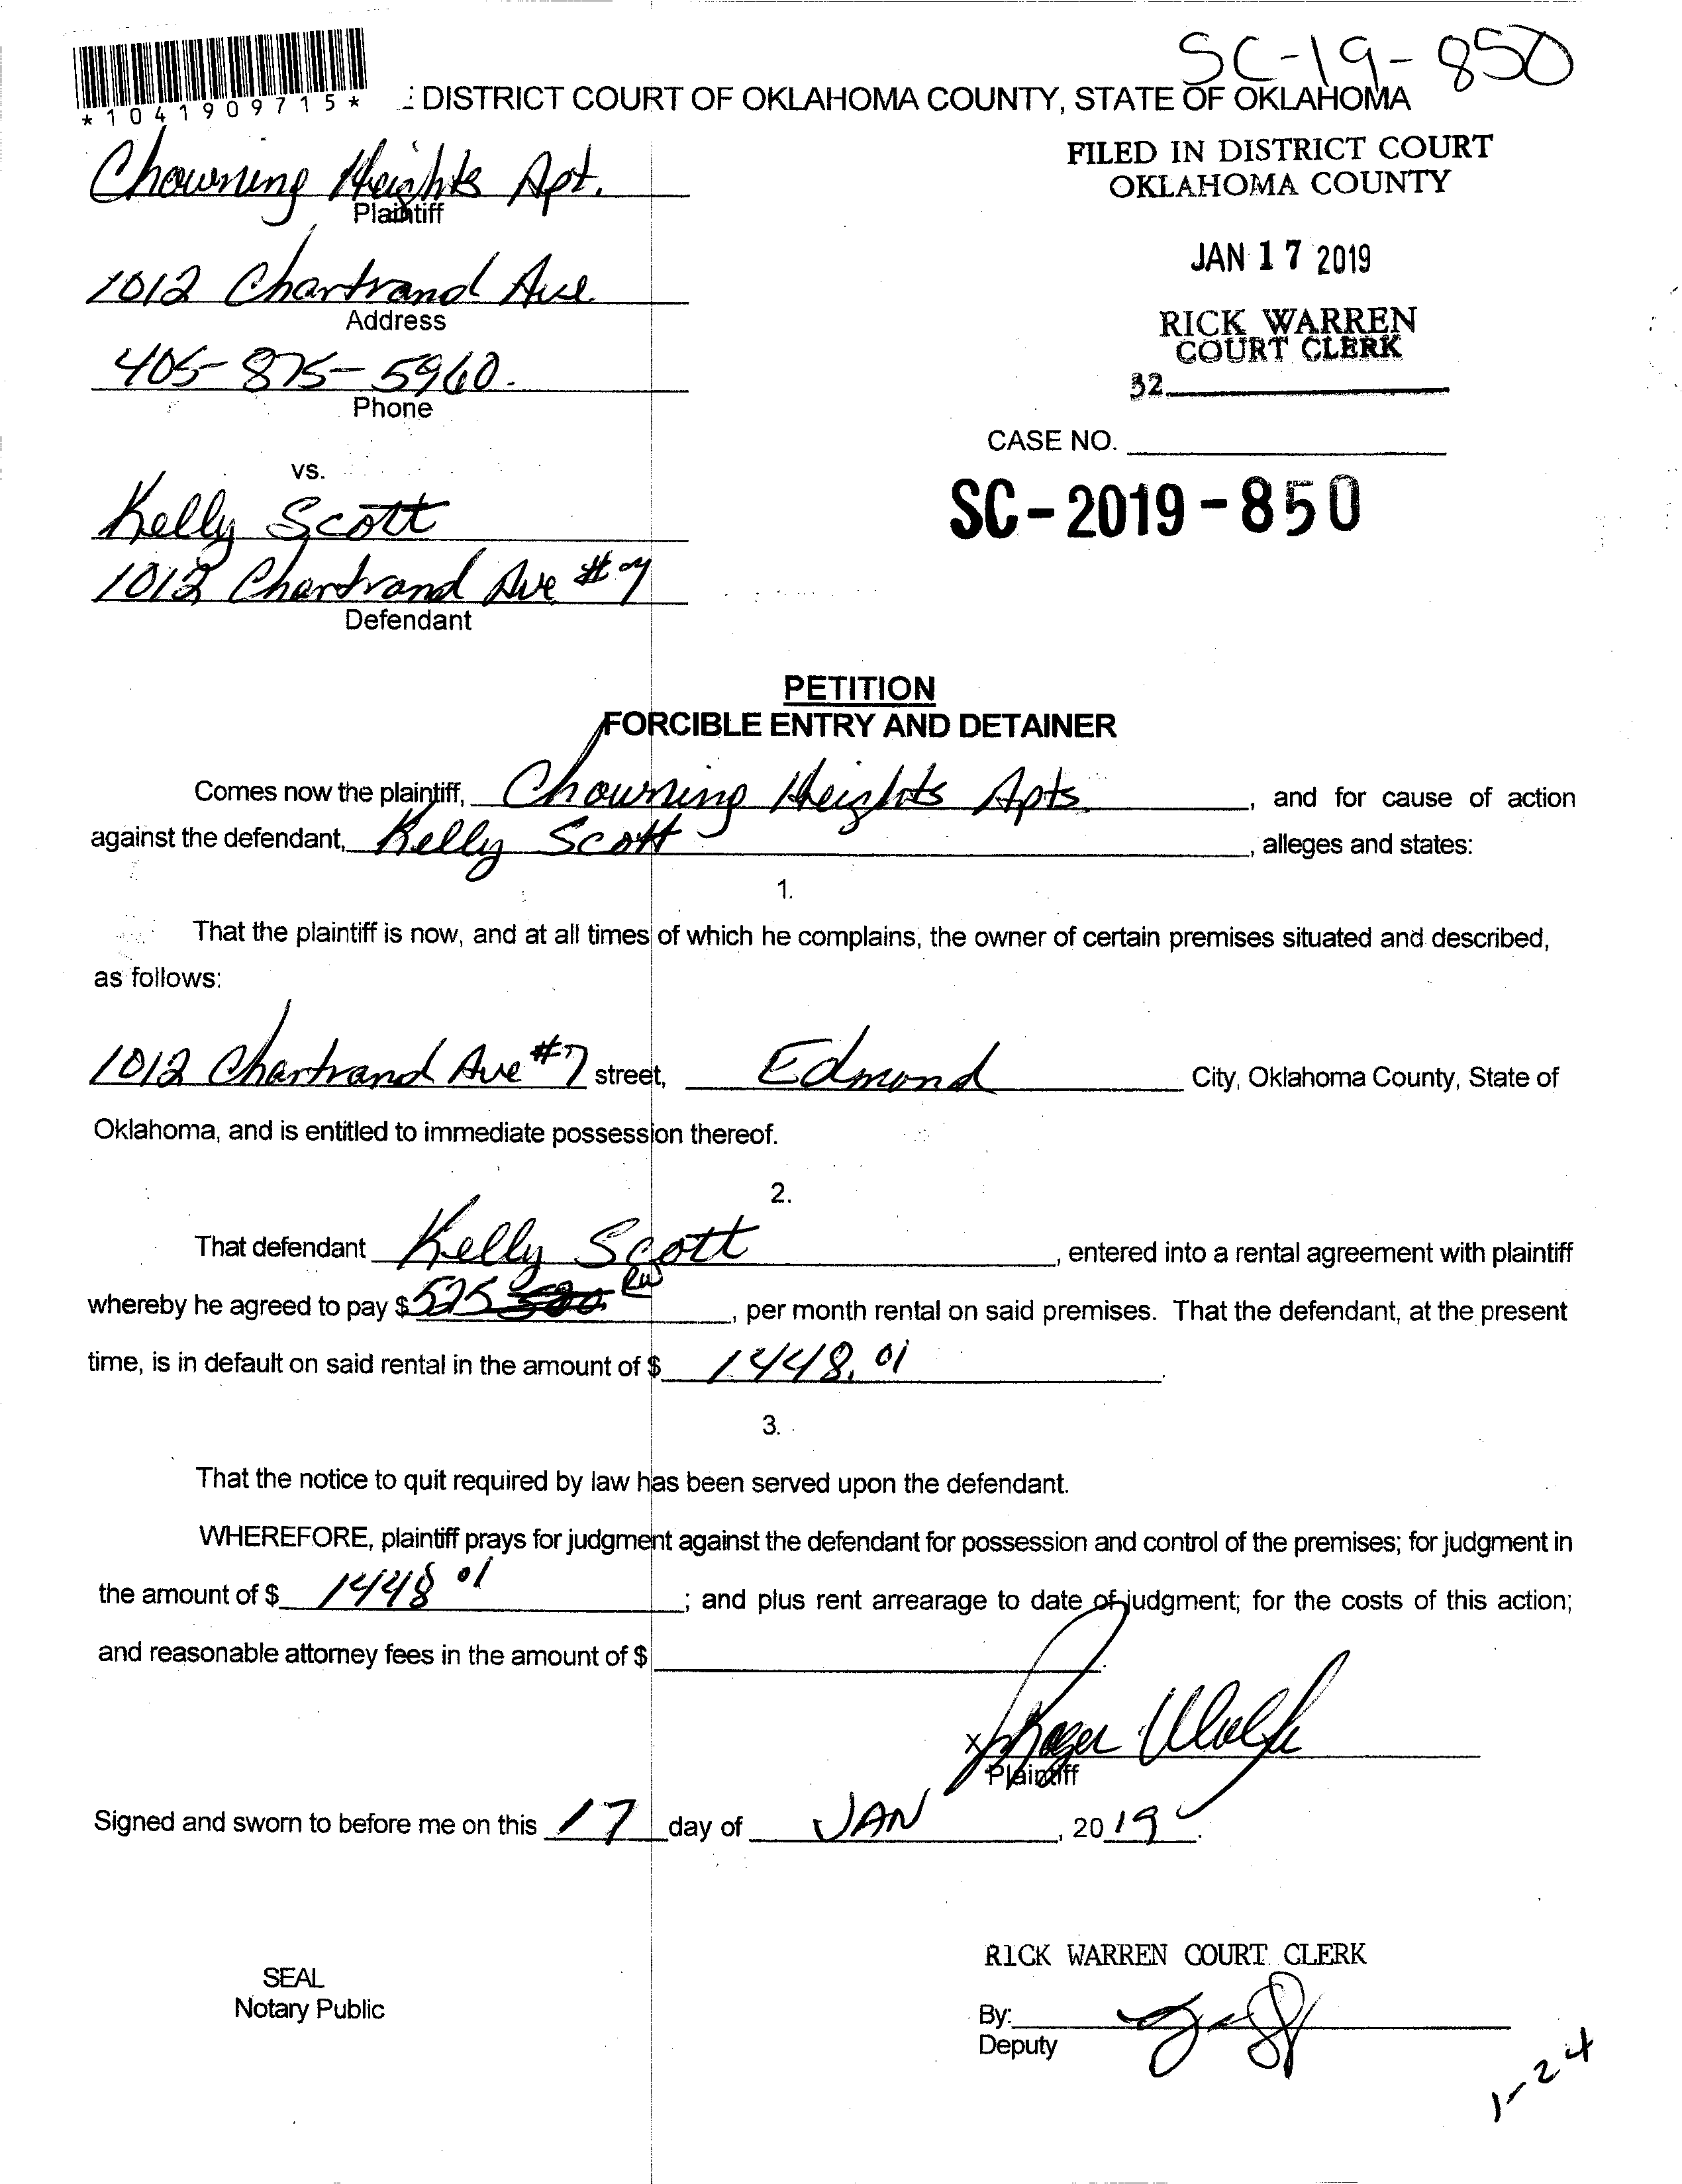 SC-19-850
*1041909715*
: DISTRICT COURT OF OKLAHOMA COUNTY, STATE OF OKLAHOMA
FILED IN DISTRICT COURT
OKLAHOMA COUNTY
Chowning Heights Apt.
Plaintiff
JAN 17 2019
1012 Chartrand Ave
Address
RICK WARREN
COURT CLERK
405-875-5960.
Phone
32
CASE NO.
vs.
SC-2019-850
Kelly Scott
1012 Chartrand Ave #7
Defendant
PETITION
FORCIBLE ENTRY AND DETAINER
Comes now the plaintiff, Chowning Heights Apts, and for cause of action
against the defendant, Kelly Scott, alleges and states:
1.
That the plaintiff is now, and at all times of which he complains, the owner of certain premises situated and described,
as follows:
1012 Chartrand Ave #7 street, Edmond City, Oklahoma County, State of
Oklahoma, and is entitled to immediate possession thereof.
2.
That defendant Kelly Scott, entered into a rental agreement with plaintiff
whereby he agreed to pay $ 525 RW, per month rental on said premises. That the defendant, at the present
time, is in default on said rental in the amount of $ 1448.01.
3.
That the notice to quit required by law has been served upon the defendant.
WHEREFORE, plaintiff prays for judgment against the defendant for possession and control of the premises; for judgment in
the amount of $ 1448 01; and plus rent arrearage to date of judgment; for the costs of this action;
and reasonable attorney fees in the amount of $
x Roger
Plaintiff
Signed and sworn to before me on this 17 day of JAN, 2019.
RICK WARREN COURT CLERK
SEAL
Notary Public
By:
Deputy
1-24